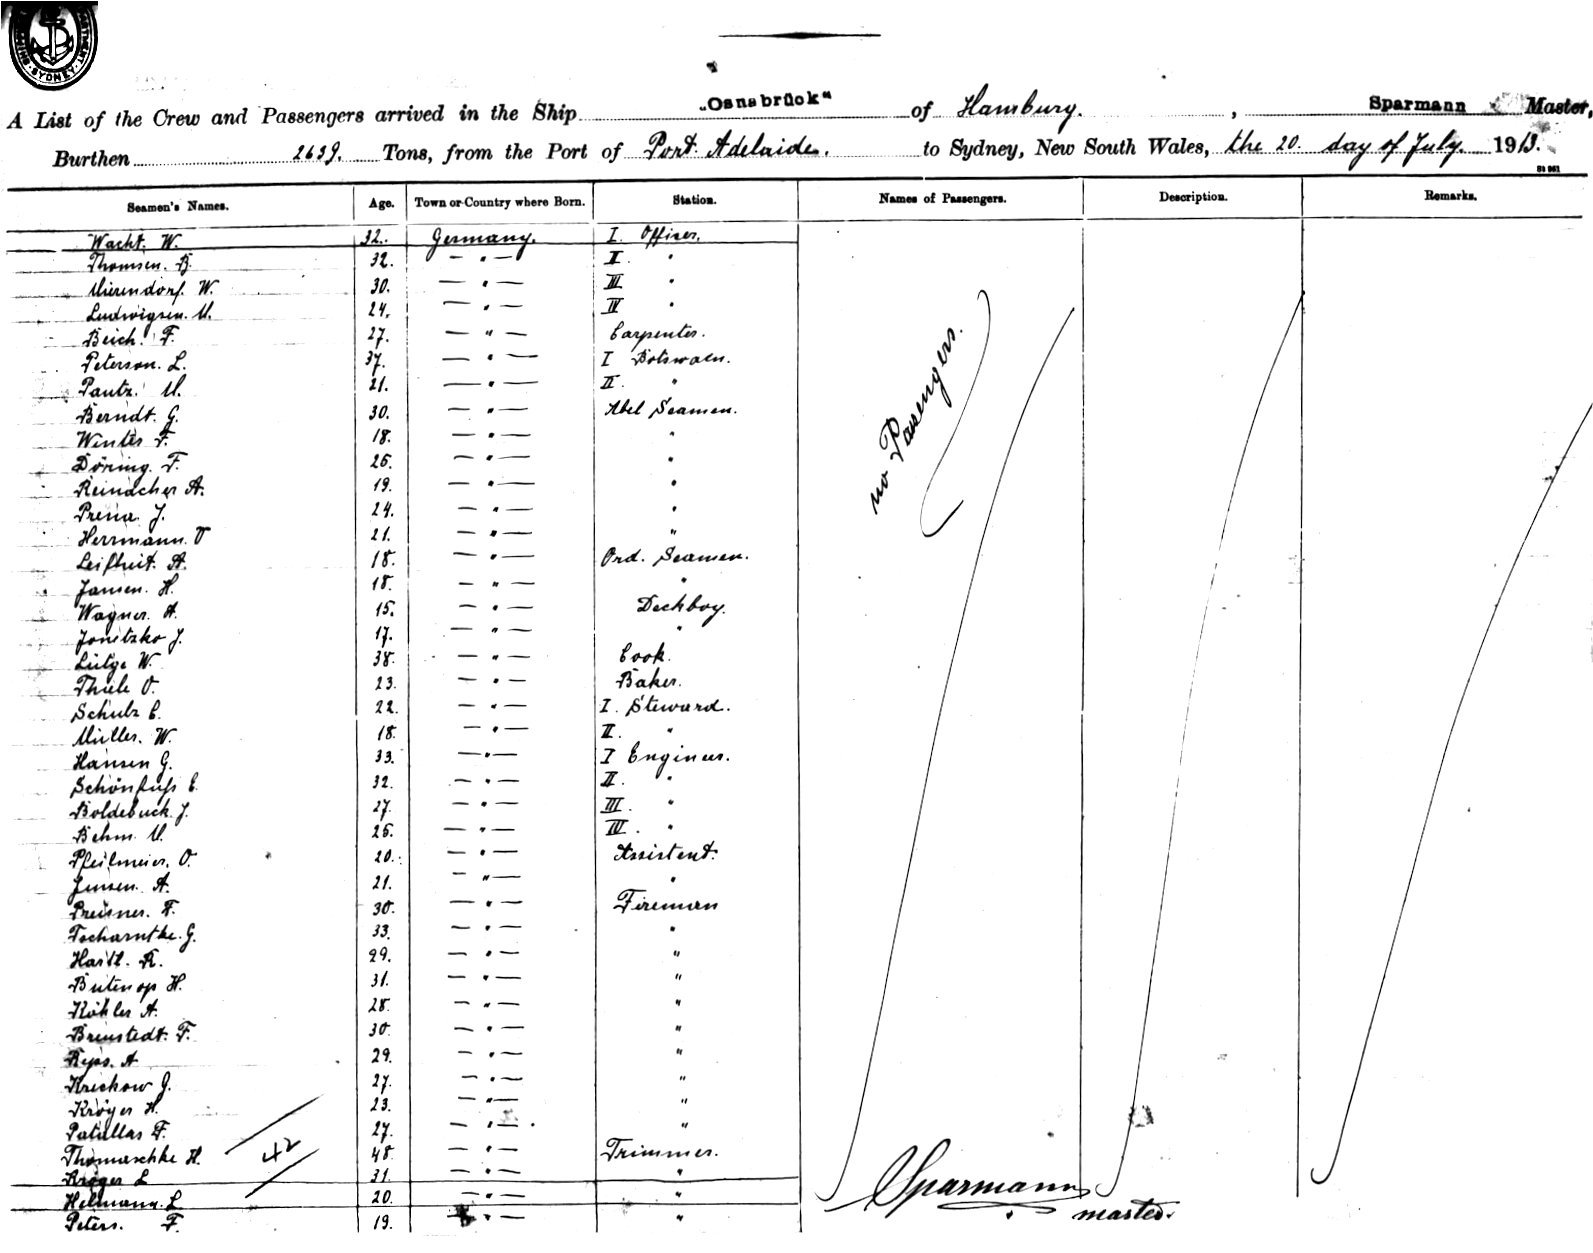 SYDNEY
"Osnabrück"
A List of the Crew and Passengers arrived in the Ship "Osnabrück" of Hamburg. , Sparmann Master,
Burthen 2639. Tons, from the Port of Port Adelaide. to Sydney, New South Wales, the 20. day of July. 1913.
Seamen's Names. Age. Town or Country where Born. Station. Names of Passengers. Description. Remarks.
Wacht. W. 32. Germany. I. Officer.
Thomsen. B. 32. — " — II. "
Mierendorf. W. 30. — " — III "
Ludwigsen. M. 24. — " — IV "
Beich. F. 27. — " — Carpenter.
Peterson. L. 37. — " — I Botswaen.
Pautz. M. 21. — " — II. "
Berndt. G. 30. — " — Abel Seamen.
Winter F. 18. — " — "
Döring. F. 26. — " — "
Reinacher A. 19. — " — "
Prena J. 24. — " — "
Herrmann. O 21. — " — "
Leifheit. A. 18. — " — Ord. Seamen.
Jansen. H. 18. — " — "
Wagner. A. 15. — " — Deckboy.
Jonetzko J. 17. — " — "
Lütge W. 38. — " — Cook.
Thiele O. 23. — " — Baker.
Schulz C. 22. — " — I. Steward.
Müller. W. 18. — " — II. "
Hansen G. 33. — " — I Engineer.
Schönfuss E. 32. — " — II. "
Boldebuck. J. 27. — " — III. "
Behm. M. 26. — " — IV. "
Pfeilmeier. O. 20. — " — Assistent.
Jensen. A. 21. — " — "
Preisner. F. 30. — " — Fireman
Tscharntke. G. 33. — " — "
Hartl. R. 29. — " — "
Butenop H. 31. — " — "
Köhler A. 28. — " — "
Breustedt. F. 30. — " — "
Ryss. A 29. — " — "
Krickow G. 27. — " — "
Kröger H. 23. — " — "
Patullas F. 27. — " — "
Thomaschke H. 48. — " — Trimmer.
Kröger L 31. — " — "
Helmann. L 20. — " — "
Peters. F. 19. — " — "
42
no Passengers.
Sparmann
master.